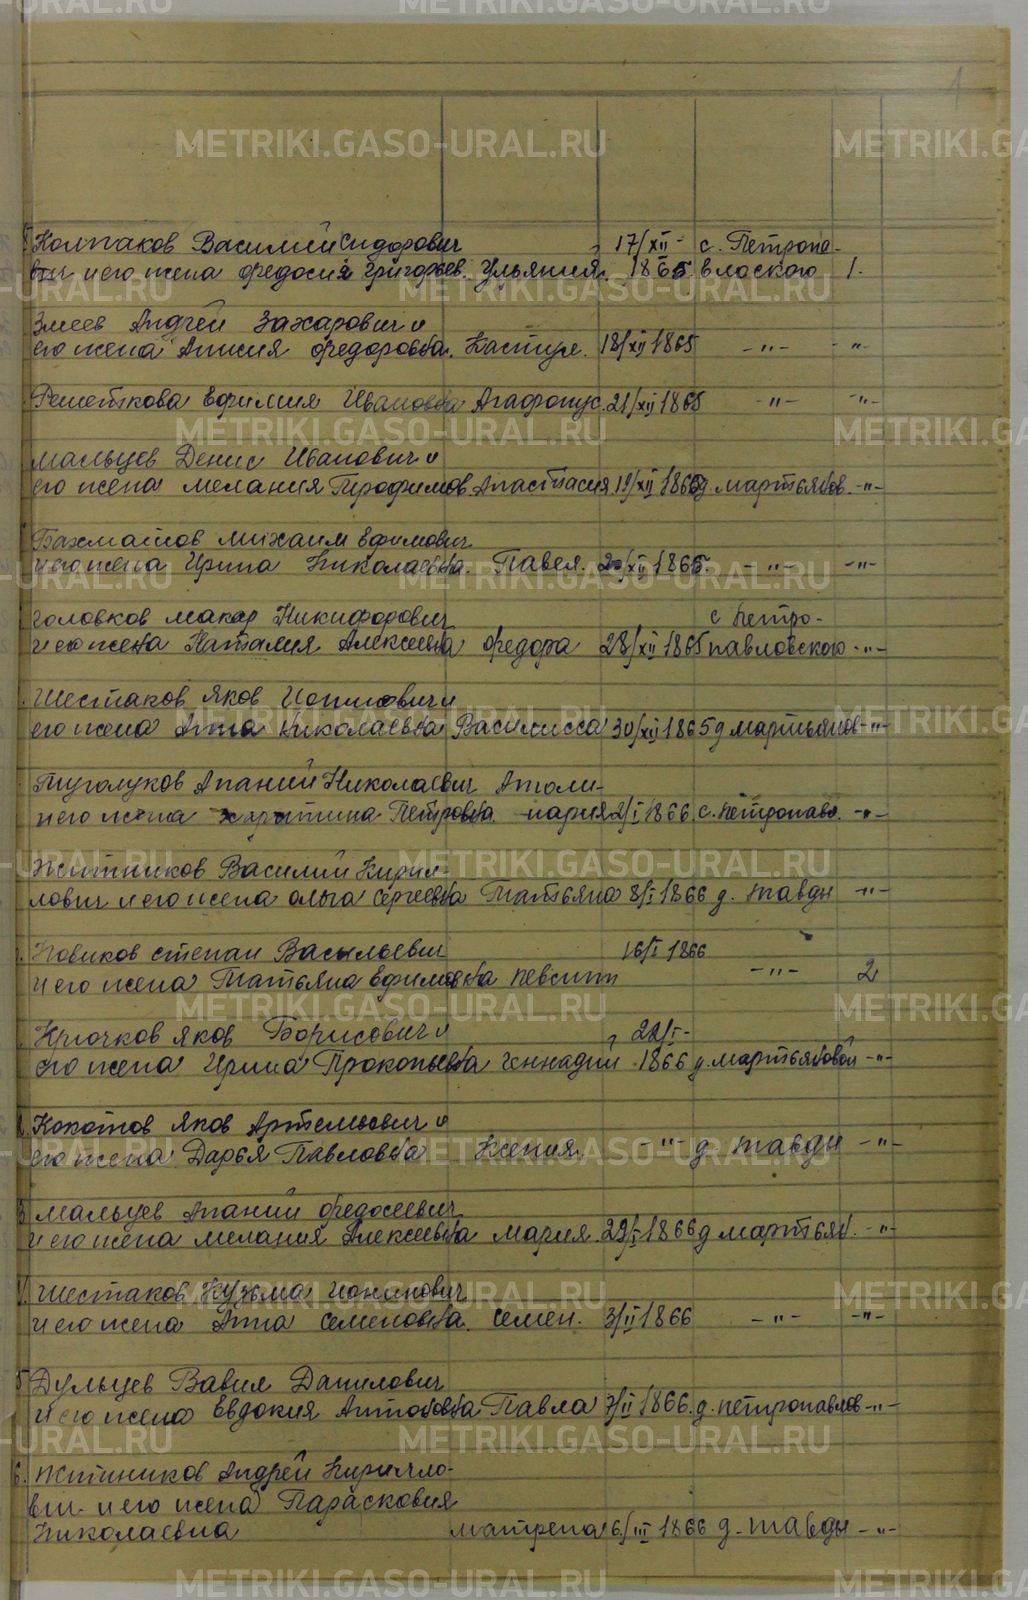 1
Колпаков Василий Сидорович 17/XII- с. Петропа-
вич и его жена Федосия Григорьев. Ульяния. 1865 вловского 1.
Змеев Андрей Захарович и
его жена Анисия Федоровна. Кастул. 18/XII 1865 -"- -"-
Решеткова Ефимия Ивановна Агафопус. 21/XII 1865 -"- -"-
Мальцев Денис Иванович и
его жена Мелания Трофимов. Анастасия 19/XII 1865 д. Мартьянов. -"-
Бахматов Михаил Ефимович
и его жена Ирина Николаевна. Павел. 20/XII 1865. -"- -"-
Головков Макар Никифорович с Петро-
и его жена Наталия Алексеевна Федора 28/XII 1865 павловского -"-
Шестаков Яков Ионинович и
его жена Анна Николаевна Василисса 30/XII 1865 д Мартьянов -"-
Туголуков Ананий Николаевич Аполи-
и его жена Харитина Петровна. нария 2/I 1866. с. Петропавл. -"-
Житников Василий Кирил-
лович и его жена Ольга Сергеевна Татьяна 8/I 1866 д. Тавды -"-
Новиков Степан Васильевич 16/I 1866
и его жена Татьяна Ефимовна Невситп -"- 2
Крючков Яков Борисович и 22/I-
его жена Ирина Прокопьевна Геннадий 1866 д. Мартьяновой -"-
Кокотов Яков Артемьевич и
его жена Дарья Павловна Ксения. -"- д Тавды -"-
Мальцев Ананий Федосеевич
и его жена Мелания Алексеевна Мария. 29/I 1866 д Мартьян. -"-
Шестаков Кузьма Ионинович
и его жена Анна Семеновна. Семен. 3/II 1866 -"- -"-
5 Дульцев Вавил Данилович
и его жена Евдокия Антоновна Павла 7/II 1866. д. Петропавлов -"-
6. Житников Андрей Кирилло-
вич и его жена Парасковия
Николаевна Матрена 6/III 1866 д. Тавды -"-
METRIKI.GASO-URAL.RU